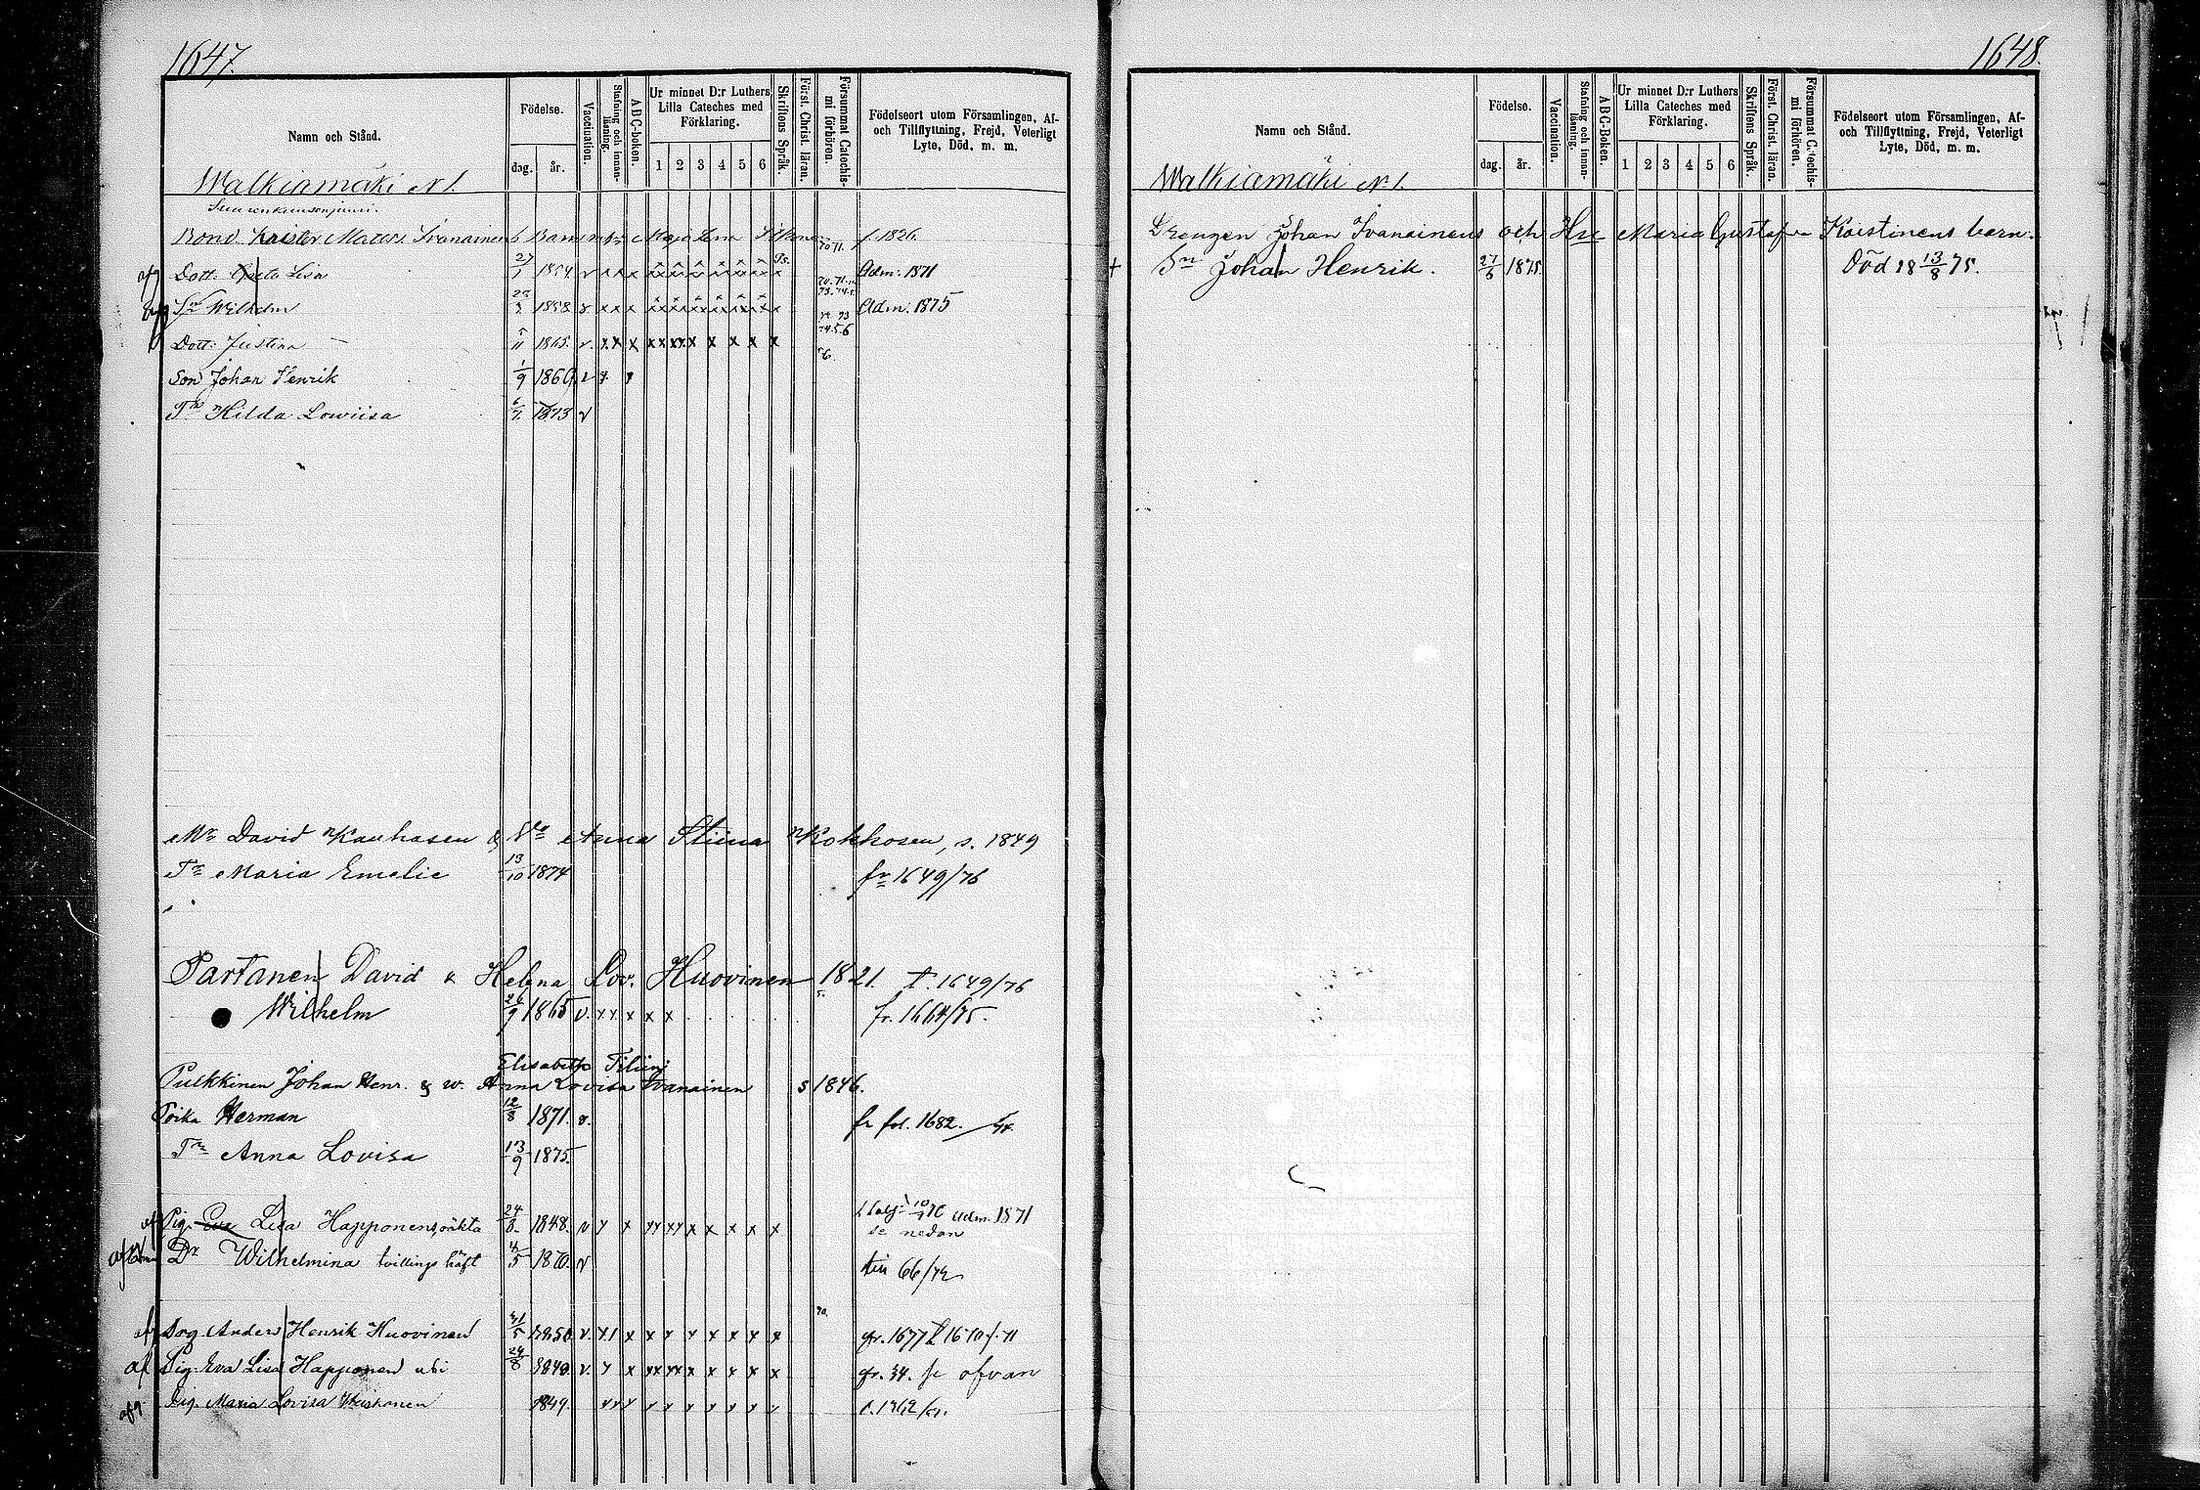 1647.
Namn och Stånd.
Födelse.
dag. år.
Vaccination.
Stafning och innan-läsning.
ABC-boken.
Ur minnet D:r Luthers Lilla Cateches med Förklaring.
1 2 3 4 5 6
Skriftens Språk.
Först. Christ. läran.
Försummat Catechis-mi förhören.
Födelseort utom Församlingen, Af-
och Tillflyttning, Frejd, Veterligt
Lyte, Död, m. m.
Walkiamäki N 1.
Bond. Maja Lena 1826.
Dott: Lisa 27/1 1854 v x x x Adm: 1871
Sn Wilhelm 1858 v x x x Adm: 1875
Dott: Justina 5/11 1865. v. x x x x x x x x x x x x
Son Johan Henrik 1/9 1869 v x
Tr Hilda Lowiisa 1873 v
Mr David Kauhasen & Va Anna Stiina Kokkosen, s. 1849
Tr Maria Emelie 13/10 1874 fr 1649/76
Partanen David & Helena Lov. Huovinen s. 1821. t. 1649/76
Wilhelm 1865 v. x x x x x fr. 1664/75.
Elisabeth
Pulkkinen Johan Henr. & w. Anna Lovisa Ivanainen s 1846.
Poika Herman 12/8 1871. v. fr fol. 1682.
Tr Anna Lovisa 13/9 1875.
af Pig. Eva Lisa Happonens, oäkta 24/8 1848. v x x x x x x x x x x x Adm. 1871
se nedan
Dr Wilhelmina tvillings häft 4/5 1870. v
af Drg Anders Henrik Huovinen 31/5 1850 v. x x x x x x x x x x
af Pig. Eva Lisa Happonen 24/8 1848. v. x x x x x x x x x x x x se ofvan
afg. Pig. Maria Lovisa 1849. x x x x x x x x x x
1648.
Namn och Stånd.
Födelse.
dag. år.
Vaccination.
Stafning och innan-läsning.
ABC-Boken.
Ur minnet D:r Luthers Lilla Cateches med Förklaring.
1 2 3 4 5 6
Skriftens Språk.
Först. Christ. läran.
Försummat Catechis-mi förhören.
Födelseort utom Församlingen, Af-
och Tillflyttning, Frejd, Veterligt
Lyte, Död, m. m.
Walkiamäki N 1.
Drengen Johan Ivanainens och Hu Maria Gustafva Koistinens barn.
+ Sn Johan Henrik. 27/6 1875. Död 18 13/8 75.